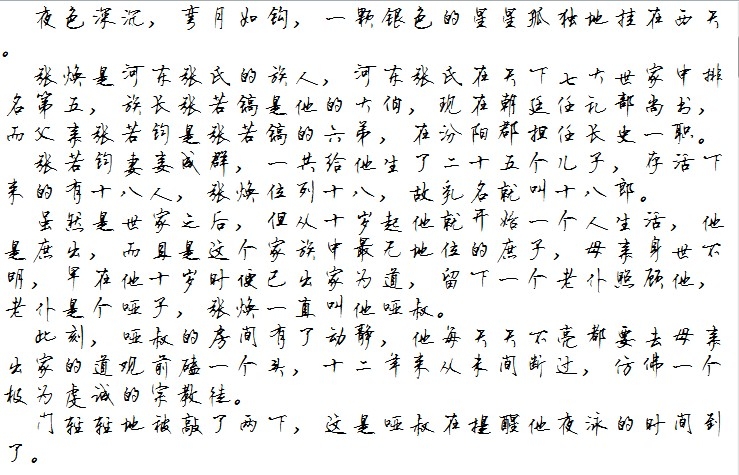 夜色深沉，弯月如钩，一颗银色的星星孤独地挂在西天
。
张焕是河东张氏的族人，河东张氏在天下七大世家中排
名第五，族长张若镐是他的大伯，现在朝廷任礼部尚书，
而父亲张若钧是张若镐的六弟，在汾阳郡担任长史一职。
张若钧妻妾成群，一共给他生了二十五个儿子，存活下
来的有十八人，张焕位列十八，故乳名就叫十八郎。
虽然是世家之后，但从十岁起他就开始一个人生活，他
是庶出，而且是这个家族中最无地位的庶子，母亲身世不
明，早在他十岁时便已出家为道，留下一个老仆照顾他，
老仆是个哑子，张焕一直叫他哑叔。
此刻，哑叔的房间有了动静，他每天天不亮都要去母亲
出家的道观前磕一个头，十二年来从未间断过，仿佛一个
极为虔诚的宗教徒。
门轻轻地被敲了两下，这是哑叔在提醒他夜泳的时间到
了。